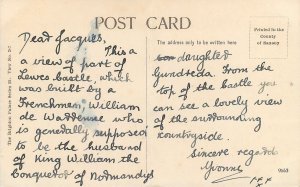 POST CARD
The address only to be written here
Printed in the
County
of Sussex
Dear Jacques,
This a
a view of part of
Lewes Castle, which
was built by a
Frenchmen, William
de Waddenne who
is genedally supposed
to be the husband
of King William the
Conquedod of Normandy's
daughted
Gundreda. From the
top of the Castle you
can see a lovely view
of the surdounding
countryside.
Sincere regards
Yvonne
x x x